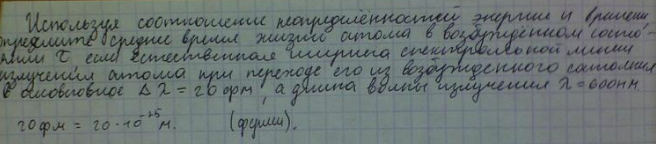 Используя соотношение неопределённостей энергии и времени,
определите среднее время жизни атома в возбуждённом состо-
янии τ, если естественная ширина спектральной линии
излучения атома при переходе его из возбуждённого состояния
в основное Δλ = 20фм, а длина волны излучения λ = 600нм.
20фм = 20·10⁻¹⁵м. (ферми).